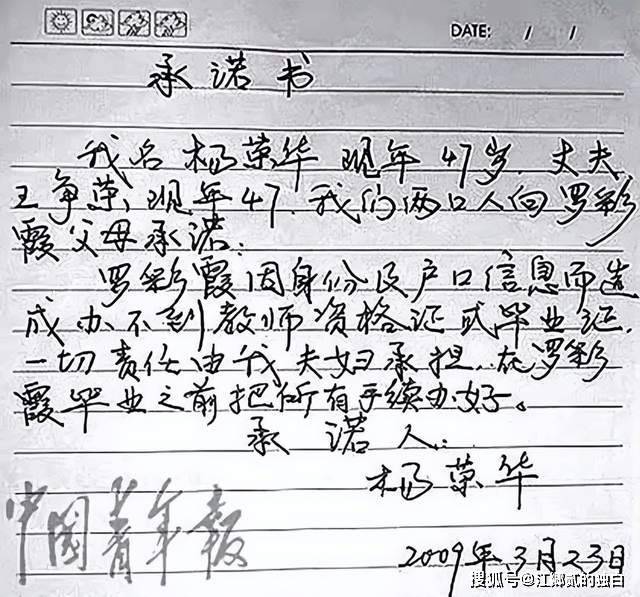 DATE: / /
承诺书
我名杨荣华 现年47岁.丈夫
王争荣,现年47.我们两口人向罗彩
霞父母承诺:
罗彩霞因身份及户口信息而造
成办不到教师资格证或毕业证.
一切责任由我夫妇承担.在罗彩
霞毕业之前把所有手续办好。
承诺人:
杨荣华
中国青年报
2009年.3月23日
搜狐号@江郷贰的独白